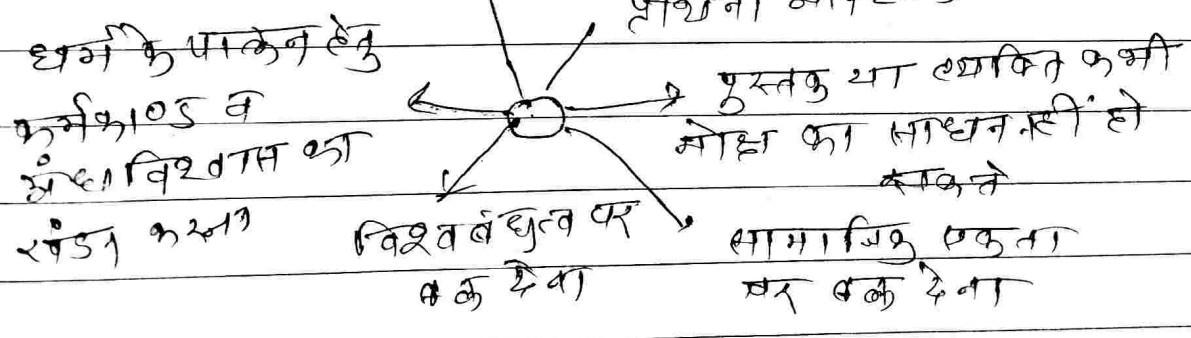 प्रार्थना
धर्म के पालन हेतु
कर्मकाण्ड व
अंधविश्वास का
खंडन करना
पुस्तक या व्यक्ति कभी
मोक्ष का साधन नहीं हो
सकते
विश्व बंधुत्व पर
बल देना
सामाजिक एकता
पर बल देना